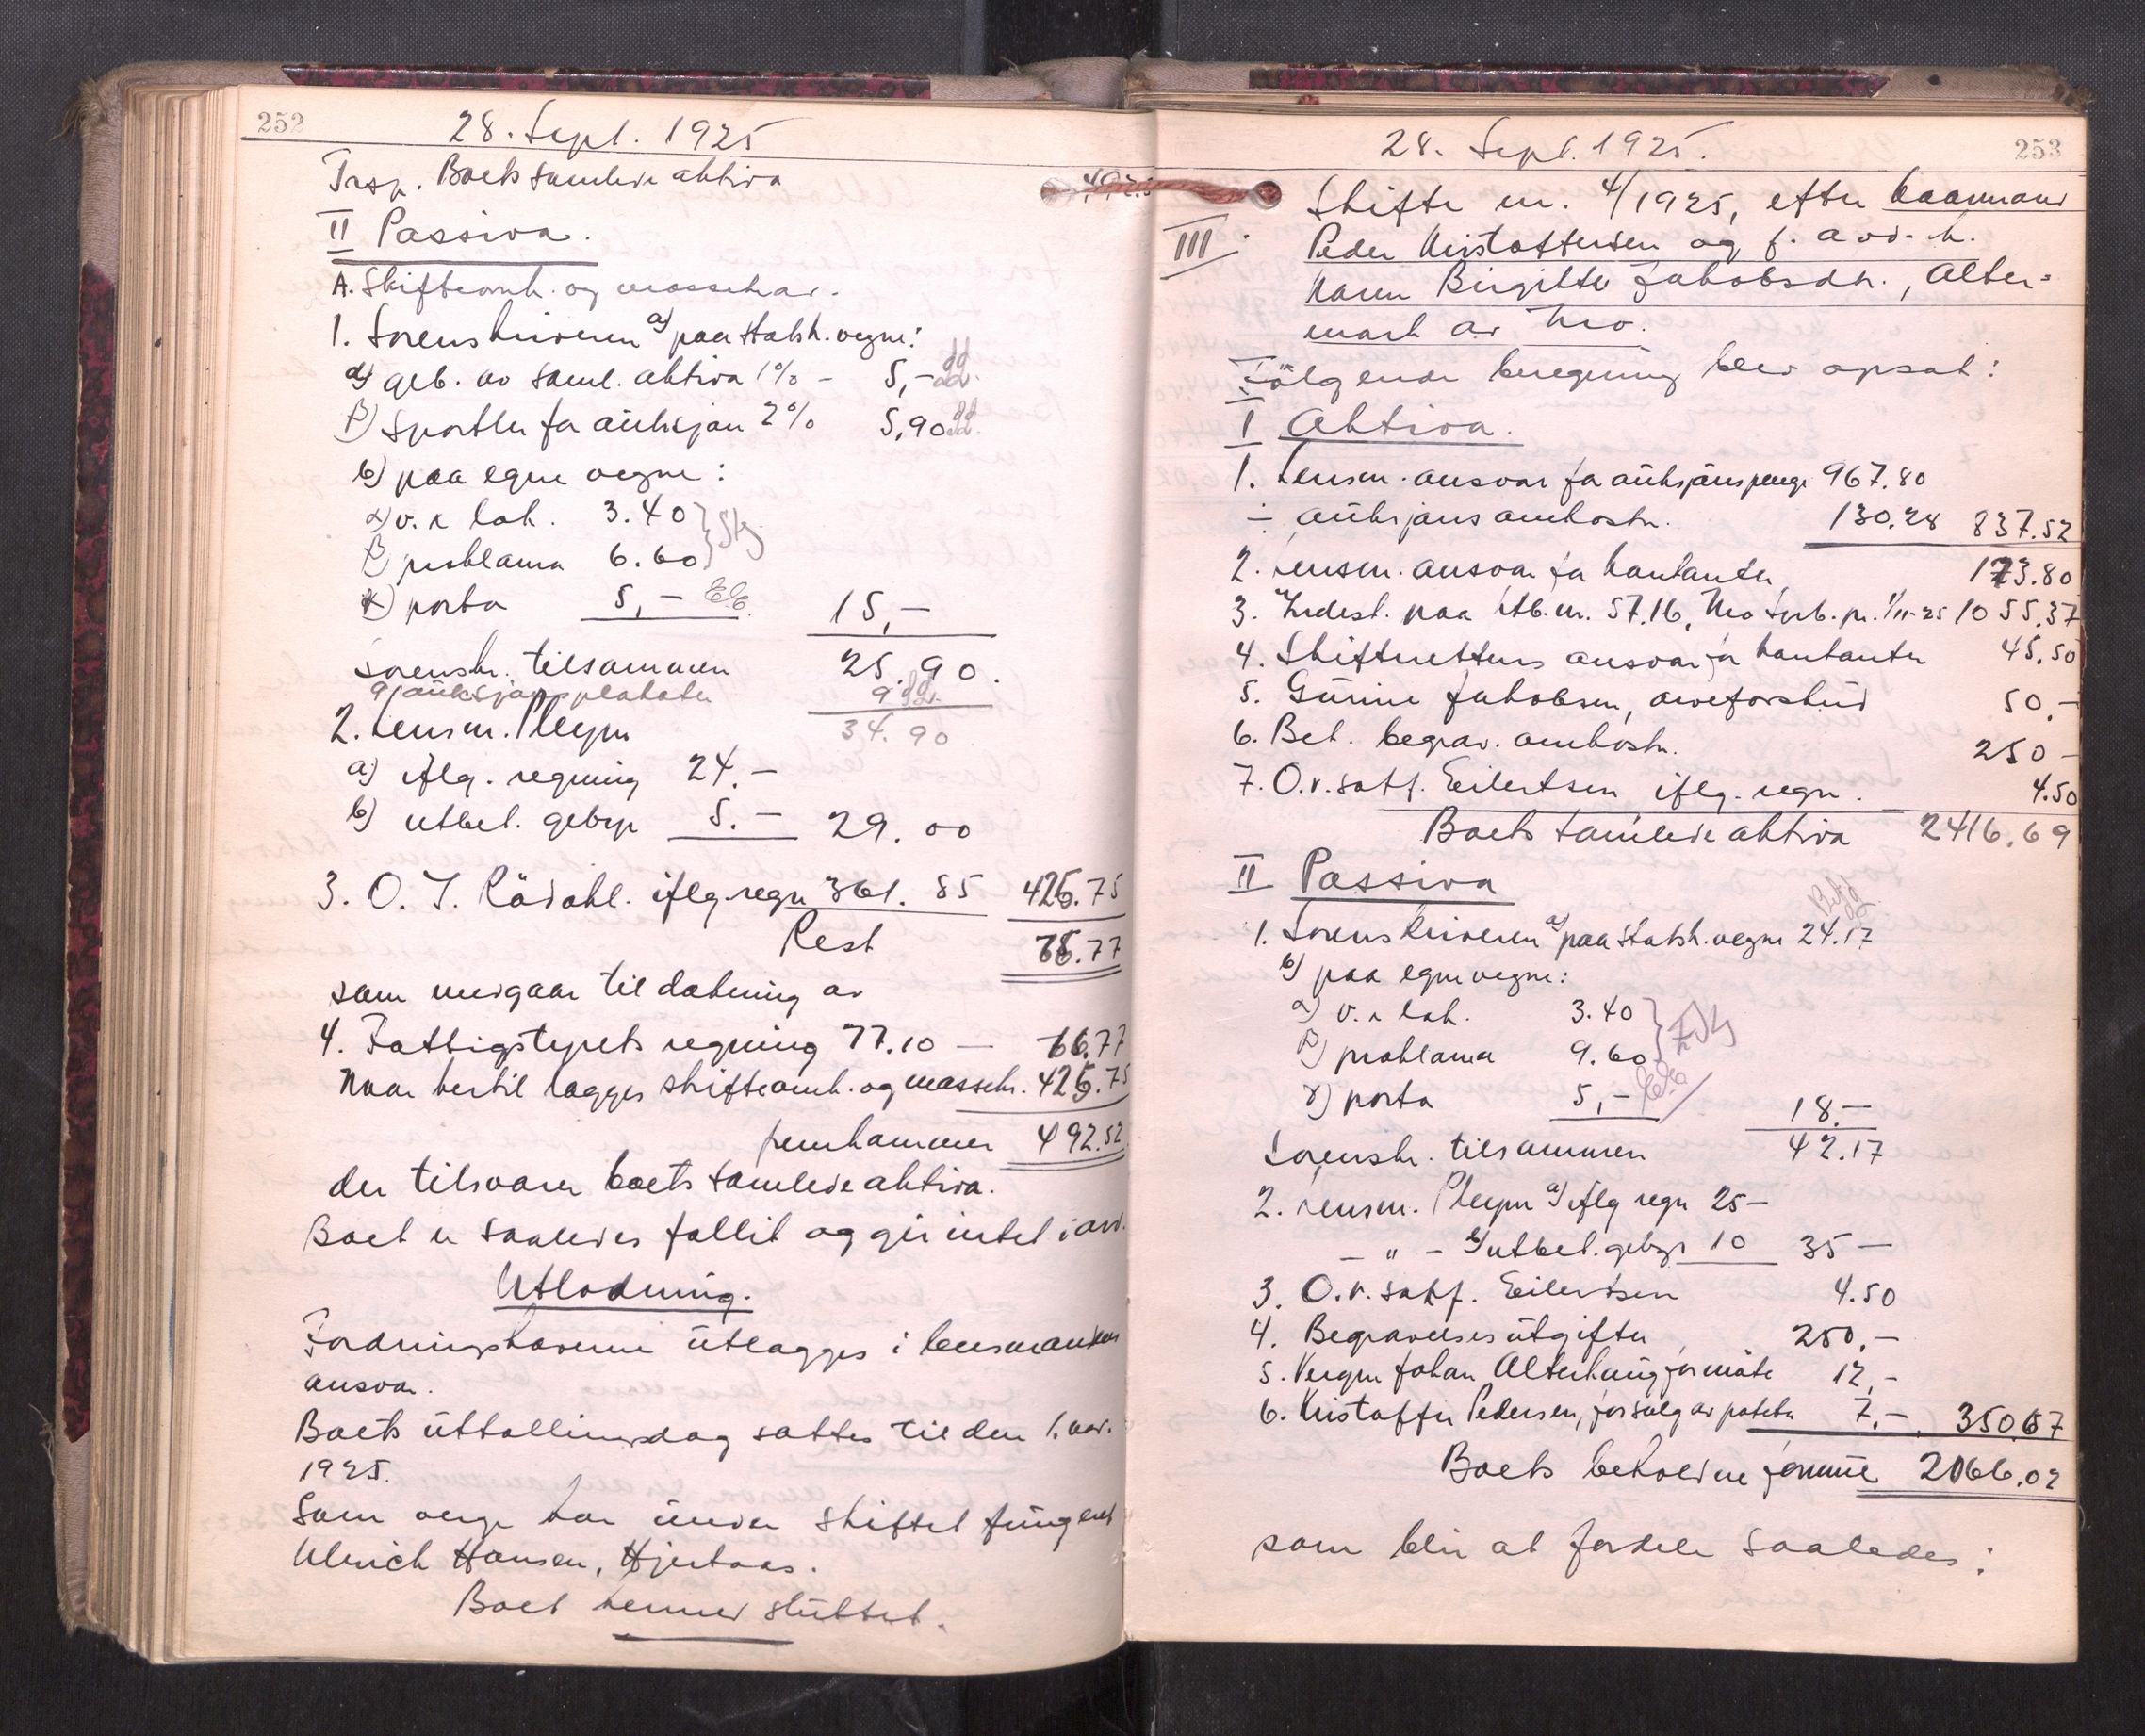 252
28. Sept. 1925
Trsp. Boets samlede aktiva 492.5
II Passiva.
A. Skifteomk. og massekrav.
1. Sorenskriveren a) paa statsk. vegne:
α) geb. av saml. aktiva 1% - 5,-
β) Sportler for auksjon 2% 5,90
b) paa egne vegne:
α) v. r lak. 3.40
β) proklama 6.60
γ) porto 5,- 15,-
Sorenskr. tilsammen 25.90.
auksjonsplakater 9
2. Lensm. Pleym 34.90
a) iflg. regning 24.-
b) utbet. gebyr 5.- 29.00
3. O. T. Rödahl. iflg. regn 361.85 426.75
Rest 78.77
som medgaar til dækning av
4. Fattigstyrets regning 77.10 — 66.77
Naar hertil lægges skifteomk. og massekr. 425.75
fremkommer 492.52
der tilsvarer boets samlede aktiva.
Boet er saaledes fallit og gir intet i arv.
Utlodning.
Fordringshaverne utlægges i lensmandens
ansvar.
Boets uttallingsdag sattes til den 1. nov.
1925.
Som verge har under skiftet fungert
Ulrich Hansen, Hjertaas.
Boet dermed sluttet.
28. Sept. 1925. 253
III. Skifte nr. 4/1925, efter kaarmand
Peder Kristoffersen og f. avd. h.
Karen Birgitte Jakobsdtr., Alter=
mark av Mo.
Følgende beregning blev opsat:
I Aktiva.
1. Lensm. ansvar for auksjonspenge 967.80
÷ auksjonsomkostn. 130.28 837.52
2. Lensm. ansvar for kontanter 173.80
3. Indest. paa ktb. nr. 57.16, Mo Sprb. pr. 1/11-25 1055.37
4. Skifterettens ansvar for kontanter 45.50
5. Gurine Jakobsen, arveforskud 50.-
6. Bet. begrav. omkostn. 250 -
7. O.r.sakf. Eilertsen iflg. regn. 4.50
Boets samlede aktiva 2416.69
II Passiva
1. Sorenskriveren a) paa statsk. vegne 24.17
b) paa egne vegne:
α) v. r lak. 3.40
β) proklama 9.60
γ) porto 5,- 18.-
Sorenskr. tilsammen 42.17
2. Lensm. Pleym a) iflg regn 25-
— " — b) utbet. gebyr 10 35 —
3. O.r.sakf. Eilertsen 4.50
4. Begravelsesutgifter 250,-
5. Vergen Johan Alterhaug for møte 12,-
6. Kristoffer Pedersen, for salg av poteter 7.- 350.67
Boets beholdne formue 2066.02
som blir at fordele saaledes: